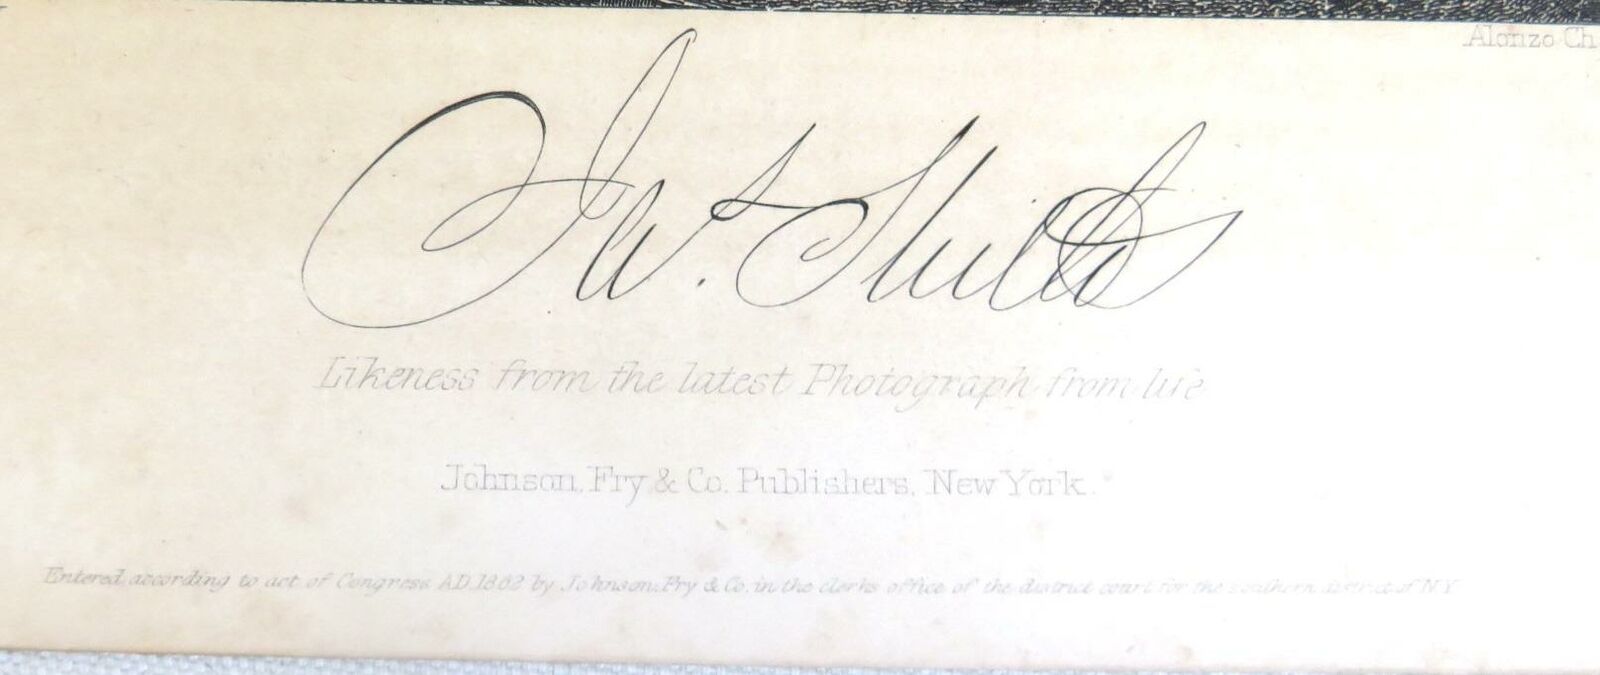 Alonzo Ch
Jas. Shields
Likeness from the latest Photograph from life
Johnson, Fry & Co. Publishers, New York.
Entered, according to act of Congress A.D. 1862 by Johnson, Fry & Co. in the clerks office of the district court for the southern district of N.Y